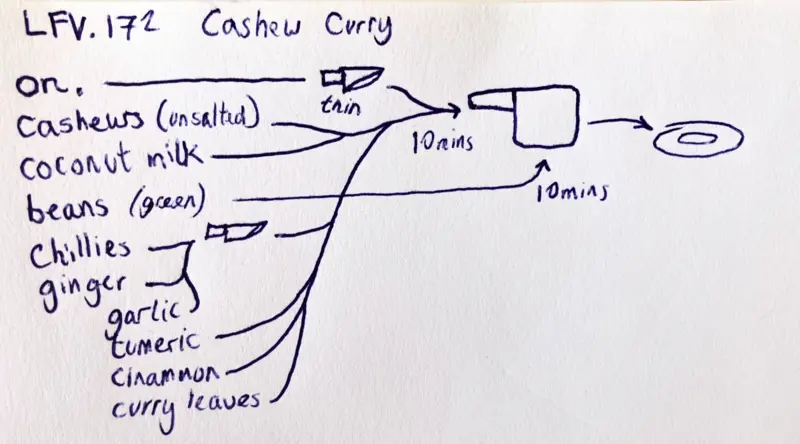 LFV.172 Cashew Curry
on.
thin
Cashews (unsalted)
coconut milk
10mins
beans (green)
10mins
Chillies
ginger
garlic
tumeric
cinammon
curry leaves